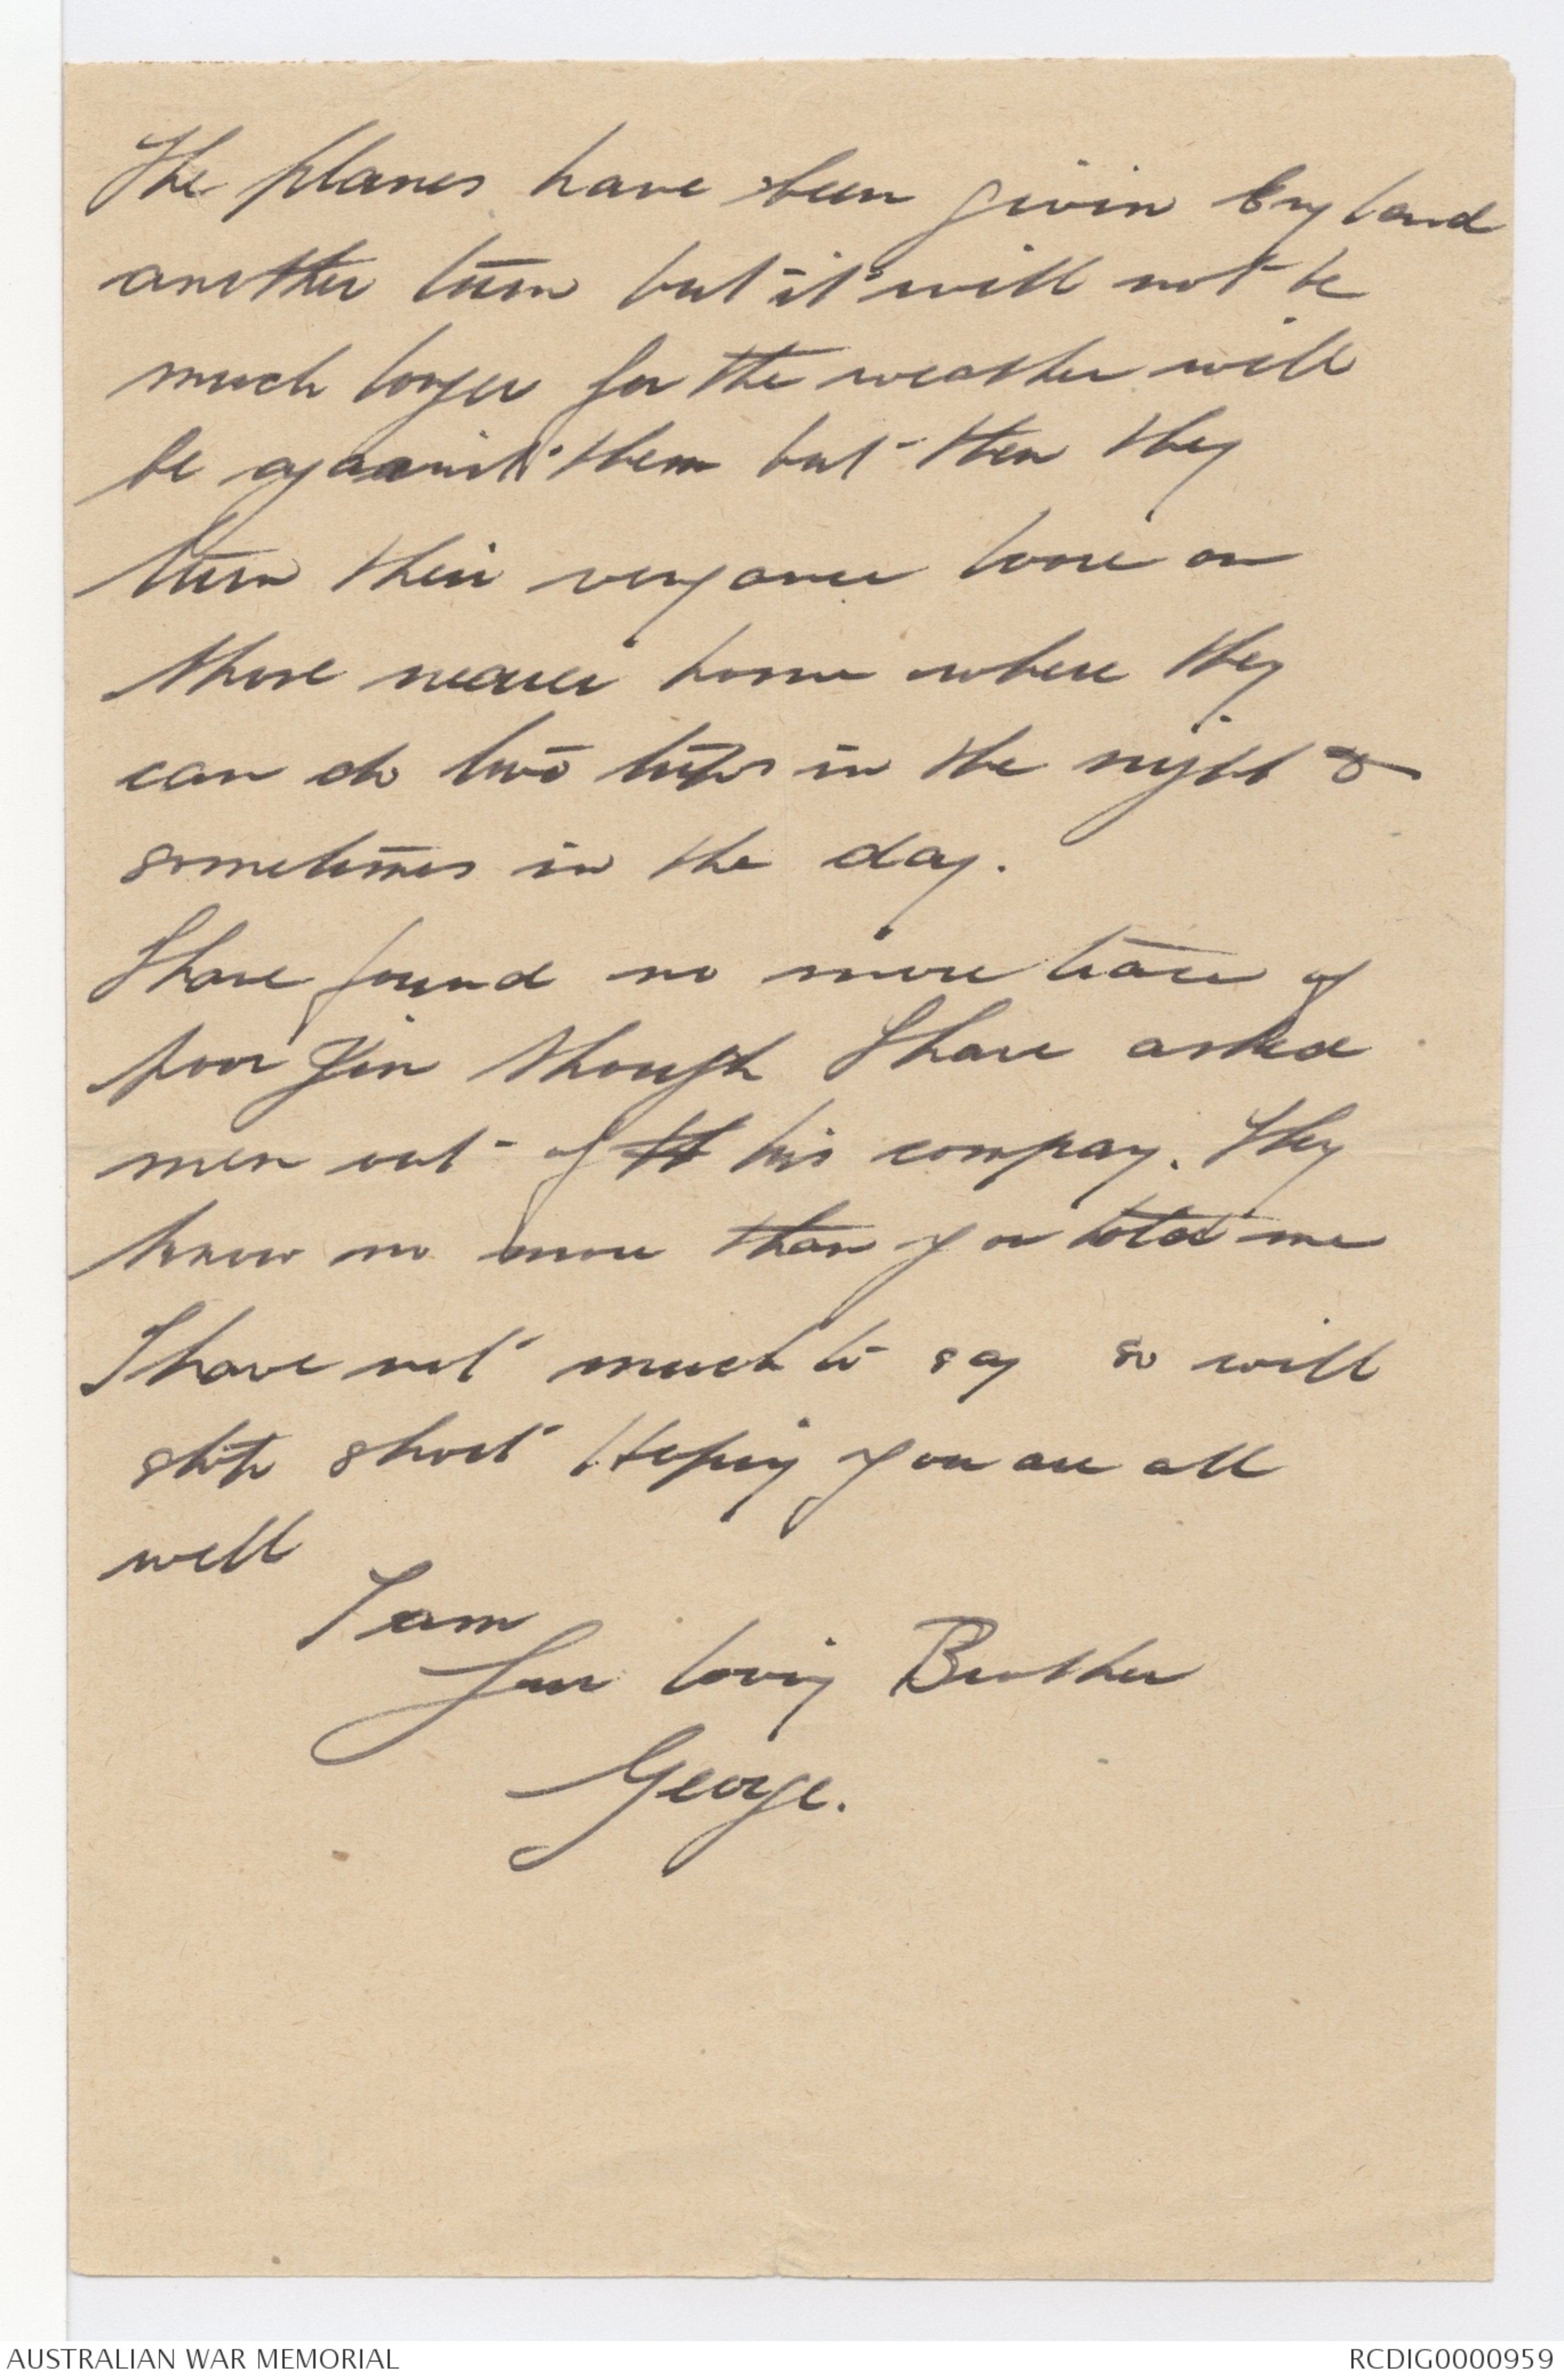 The planes have been givin England
another turn but it will not be
much longer for the weather will
be against them but then they
turn their vengance loose on
those nearer home where they
can do two trips in the night &
sometimes in the day.
I have found no more trace of
poor Jim though I have asked
men out of his company. They
know no more than you told me
I have not much to say so will
stop short Hoping you are all
well
I am
Your loving Brother
George.
AUSTRALIAN WAR MEMORIAL
RCDIG0000959